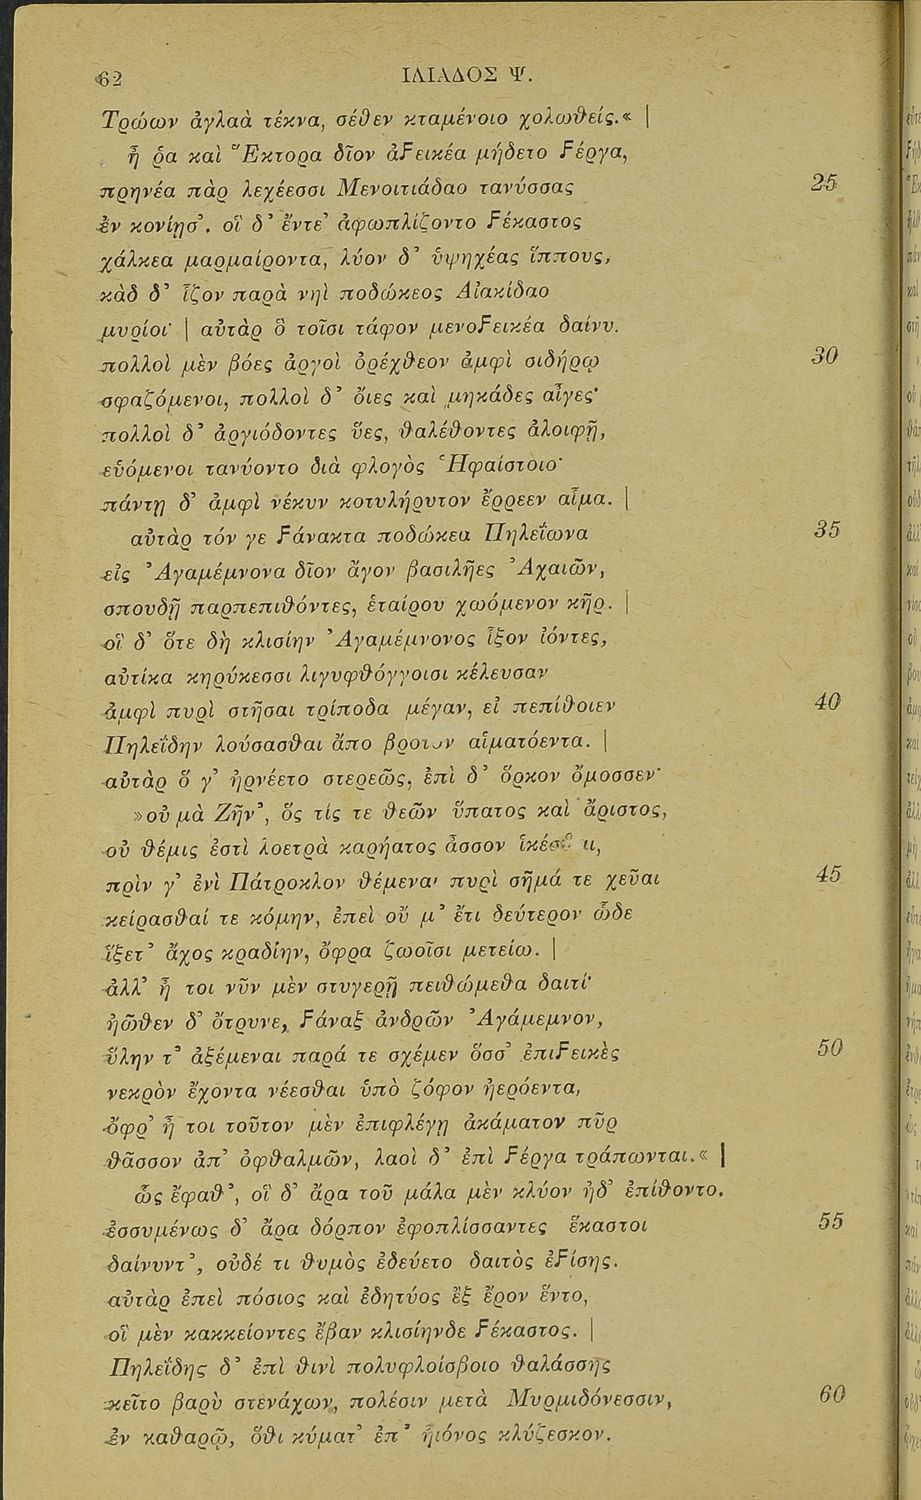 62 ΙΛΙΑΔΟΣ Ψ.
Τρώων ἀγλαὰ τέκνα, σέθεν κταμένοιο χολωθείς.« |
ἦ ῥα καὶ Ἕκτορα δῖον ἀϝεικέα μήδετο ϝέργα,
πρηνέα πὰρ λεχέεσσι Μενοιτιάδαο τανύσσας 25
ἐν κονίῃσ᾽. οἳ δ᾽ ἔντε᾽ ἀφωπλίζοντο ϝέκαστος
χάλκεα μαρμαίροντα, λύον δ᾽ ὑψηχέας ἵππους,
κὰδ δ᾽ ἷζον παρὰ νηὶ ποδώκεος Αἰακίδαο
μυρίοι· | αὐτὰρ ὃ τοῖσι τάφον μενοϝεικέα δαίνυ.
πολλοὶ μὲν βόες ἀργοὶ ὀρέχθεον ἀμφὶ σιδήρῳ 30
σφαζόμενοι, πολλοὶ δ᾽ ὄιες καὶ μηκάδες αἶγες·
πολλοὶ δ᾽ ἀργιόδοντες ὕες, θαλέθοντες ἀλοιφῇ,
εὑόμενοι τανύοντο διὰ φλογὸς Ἡφαίστοιο·
πάντῃ δ᾽ ἀμφὶ νέκυν κοτυλήρυτον ἔρρεεν αἷμα. |
αὐτὰρ τόν γε ϝάνακτα ποδώκεα Πηλεΐωνα 35
εἰς Ἀγαμέμνονα δῖον ἄγον βασιλῆες Ἀχαιῶν,
σπουδῇ παρπεπιθόντες, ἑταίρου χωόμενον κῆρ. |
οἳ δ᾽ ὅτε δὴ κλισίην Ἀγαμέμνονος ἷξον ἰόντες,
αὐτίκα κηρύκεσσι λιγυφθόγγοισι κέλευσαν
ἀμφὶ πυρὶ στῆσαι τρίποδα μέγαν, εἰ πεπίθοιεν 40
Πηλεΐδην λούσασθαι ἄπο βροτον αἱματόεντα. |
αὐτὰρ ὅ γ᾽ ἠρνέετο στερεῶς, ἐπὶ δ᾽ ὅρκον ὄμοσσεν·
»οὐ μὰ Ζῆν᾽, ὅς τίς τε θεῶν ὕπατος καὶ ἄριστος,
οὐ θέμις ἐστὶ λοετρὰ καρήατος ἆσσον
πρίν γ᾽ ἐνὶ Πάτροκλον θέμεναι πυρὶ σῆμά τε χεῦαι 45
κείρασθαί τε κόμην, ἐπεὶ οὔ μ᾽ ἔτι δεύτερον ὧδε
ἵξετ᾽ ἄχος κραδίην, ὄφρα ζωοῖσι μετείω. |
ἀλλ᾽ ἦ τοι νῦν μὲν στυγερῇ πειθώμεθα δαιτί·
ἠῶθεν δ᾽ ὄτρυνε, ϝάναξ ἀνδρῶν Ἀγάμεμνον,
ὕλην τ᾽ ἀξέμεναι παρά τε σχέμεν ὅσσ᾽ ἐπιϝεικὲς 50
νεκρὸν ἔχοντα νέεσθαι ὑπὸ ζόφον ἠερόεντα,
ὄφρ᾽ ἦ τοι τοῦτον μὲν ἐπιφλέγῃ ἀκάματον πῦρ
θᾶσσον ἀπ᾽ ὀφθαλμῶν, λαοὶ δ᾽ ἐπὶ ϝέργα τράπωνται.« |
ὣς ἔφαθ᾽, οἳ δ᾽ ἄρα τοῦ μάλα μὲν κλύον ἠδ᾽ ἐπίθοντο.
ἐσσυμένως δ᾽ ἄρα δόρπον ἐφοπλίσσαντες ἕκαστοι 55
δαίνυντ᾽, οὐδέ τι θυμὸς ἐδεύετο δαιτὸς ἐϝίσης.
αὐτὰρ ἐπεὶ πόσιος καὶ ἐδητύος ἐξ ἔρον ἕντο,
οἳ μὲν κακκείοντες ἔβαν κλισίηνδε ϝέκαστος. |
Πηλεΐδης δ᾽ ἐπὶ θινὶ πολυφλοίσβοιο θαλάσσης
κεῖτο βαρὺ στενάχων, πολέσιν μετὰ Μυρμιδόνεσσιν, 60
ἐν καθαρῷ, ὅθι κύματ᾽ ἐπ᾽ ἠιόνος κλύζεσκον.